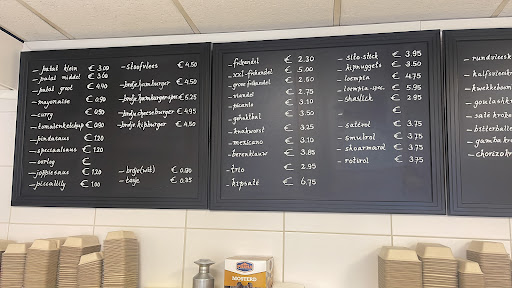 - patat klein € 3.00
- patat middel € 3.60
- patat groot € 4.40
- mayonaise € 0.90
- curry € 0.90
- tomatenketchup € 0.90
- pindasaus € 1.20
- speciaalsaus € 1.20
- oorlog €
- joppiesaus € 1.20
- piccalilly € 1.00
- stoofvlees € 4.50
- brdje hamburger € 4.50
- brdje hamburger spec € 5.25
- brdje cheeseburger € 4.95
- brdje kipburger € 4.50
- brdje (wit) € 0.80
- tasje € 0.35
- frikandel € 2.30
- xxl-frikandel € 5.00
- grote frikandel € 2.50
- viandel € 2.75
- picanto € 3.10
- gehaktbal € 3.50
- knakworst € 3.25
- mexicano € 3.10
- berenklauw € 3.85
- trio € 2.95
- kipsaté € 6.75
- sito stick € 3.95
- kipnuggets € 3.50
- loempia € 4.75
- loempia-spec. € 5.95
- shaslick € 2.95
-
- saterol € 3.75
- smulrol € 3.75
- shoarmarol € 3.75
- rotirol € 3.75
- rundvlees
- kalfsvlees
- kwekkeboom
- goulashkr
- saté krok
- bitterballe
- gamba kro
- chorizo kr
MOSTERD